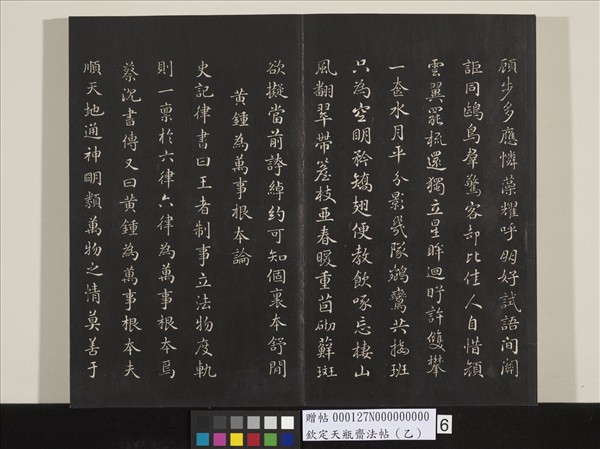 顧步多應憐藻耀呼朋好試語間關
詎同鷗鳥群驚客却比佳人自惜顏
雲翼罷梳還獨立星眸迴盱許雙攀
一奩水月平分影幾隊鵷鸞共搊班
只為空明矜矯翅便教飲啄忘棲山
風翻翠帶簷枝亞春暖重茵砌蘚斑
欲擬當前誇綽約可知個裏本舒閒
黃鍾為萬事根本論
史記律書曰王者制事立法物度軌
則一稟於六律六律為萬事根本焉
蔡沈書傳又曰黃鍾為萬事根本夫
順天地通神明類萬物之情莫善于
贈帖 000127N000000000
欽定天瓶齋法帖（乙）
6